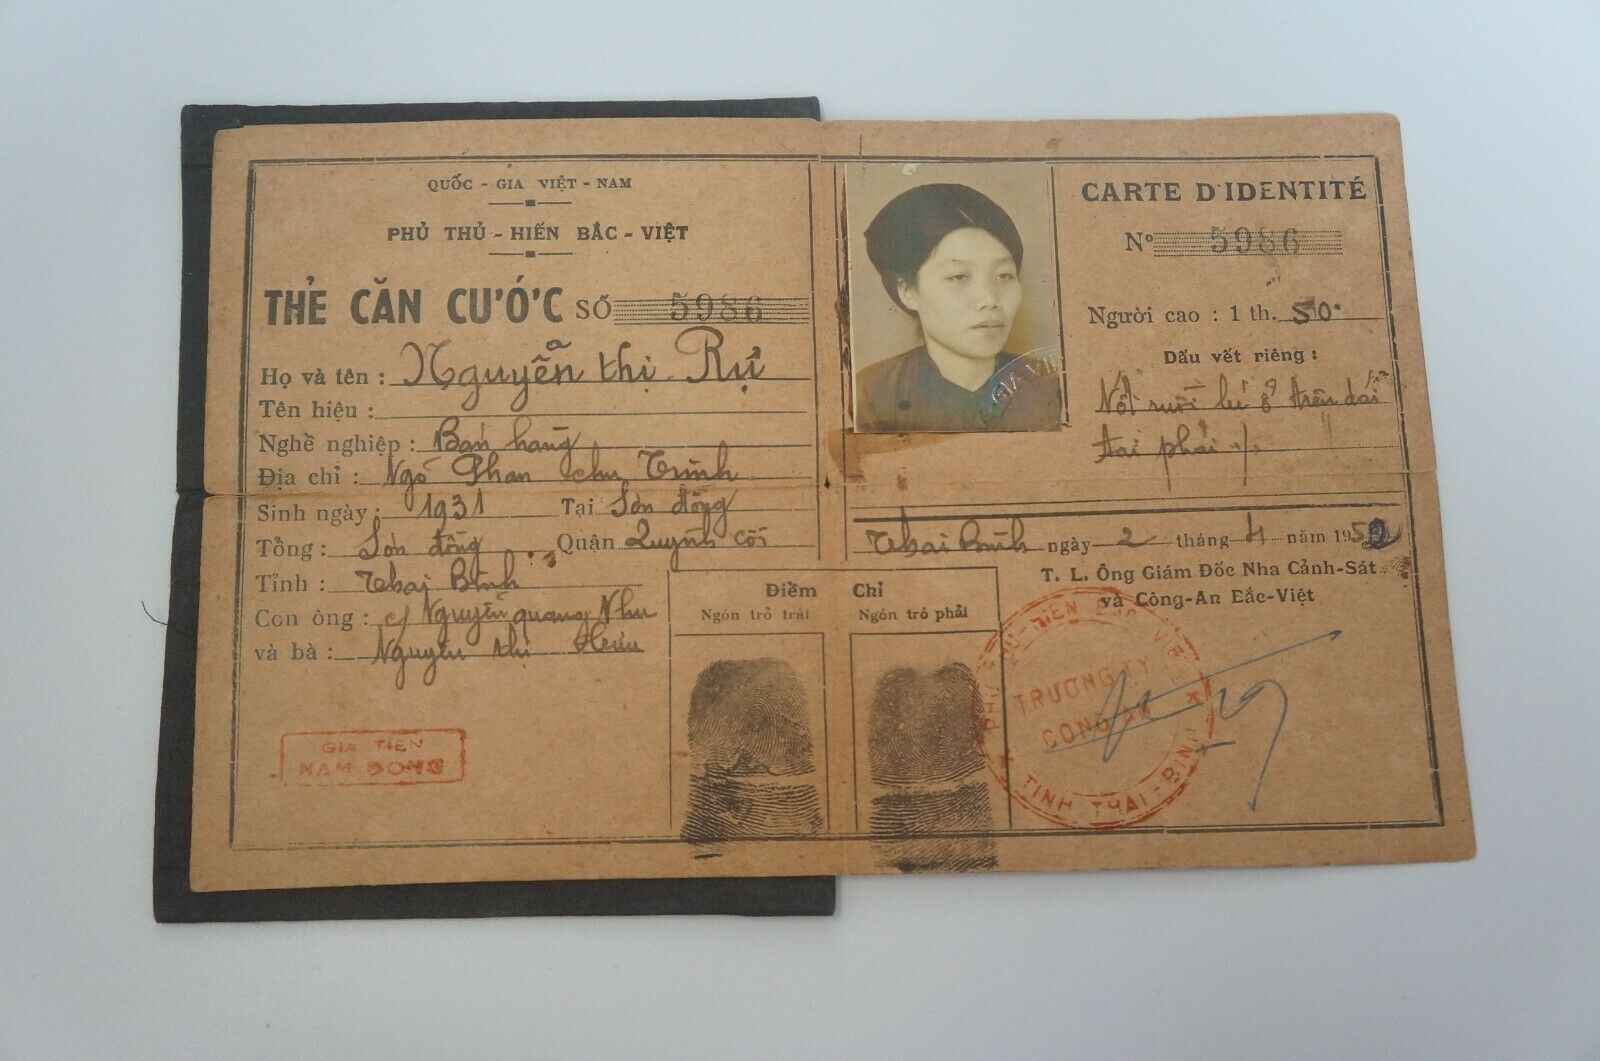 QUỐC - GIA VIỆT - NAM
PHỦ THỦ - HIẾN BẮC - VIỆT
THẺ CĂN CƯỚC SỐ 5986
Họ và tên : Nguyễn thị Rự
Tên hiệu :
Nghề nghiệp : Bán hàng
Địa chỉ : Ngõ Phan chu Trinh
Sinh ngày : 1931 Tại Sơn đồng
Tổng : Sơn đồng Quận Quỳnh côi
Tỉnh : Thái Bình
Con ông : Nguyễn quang Nhu
và bà : Nguyễn thị
GIA TIẾN
NAM ĐỒNG
Điểm Chỉ
Ngón trỏ trái Ngón trỏ phải
GIA VI
CARTE D'IDENTITÉ
Nº 5986
Người cao : 1 th. 50
Dấu vết riêng :
Nốt ruồi ở trên dái
tai phải
Thái Bình ngày 2 tháng 4 năm 1952
T. L. Ông Giám Đốc Nha Cảnh-Sát
và Công-An Bắc-Việt
PHỦ THỦ-HIẾN BẮC VIỆT
TRƯỞNG TY
CÔNG AN
TỈNH THÁI-BÌNH